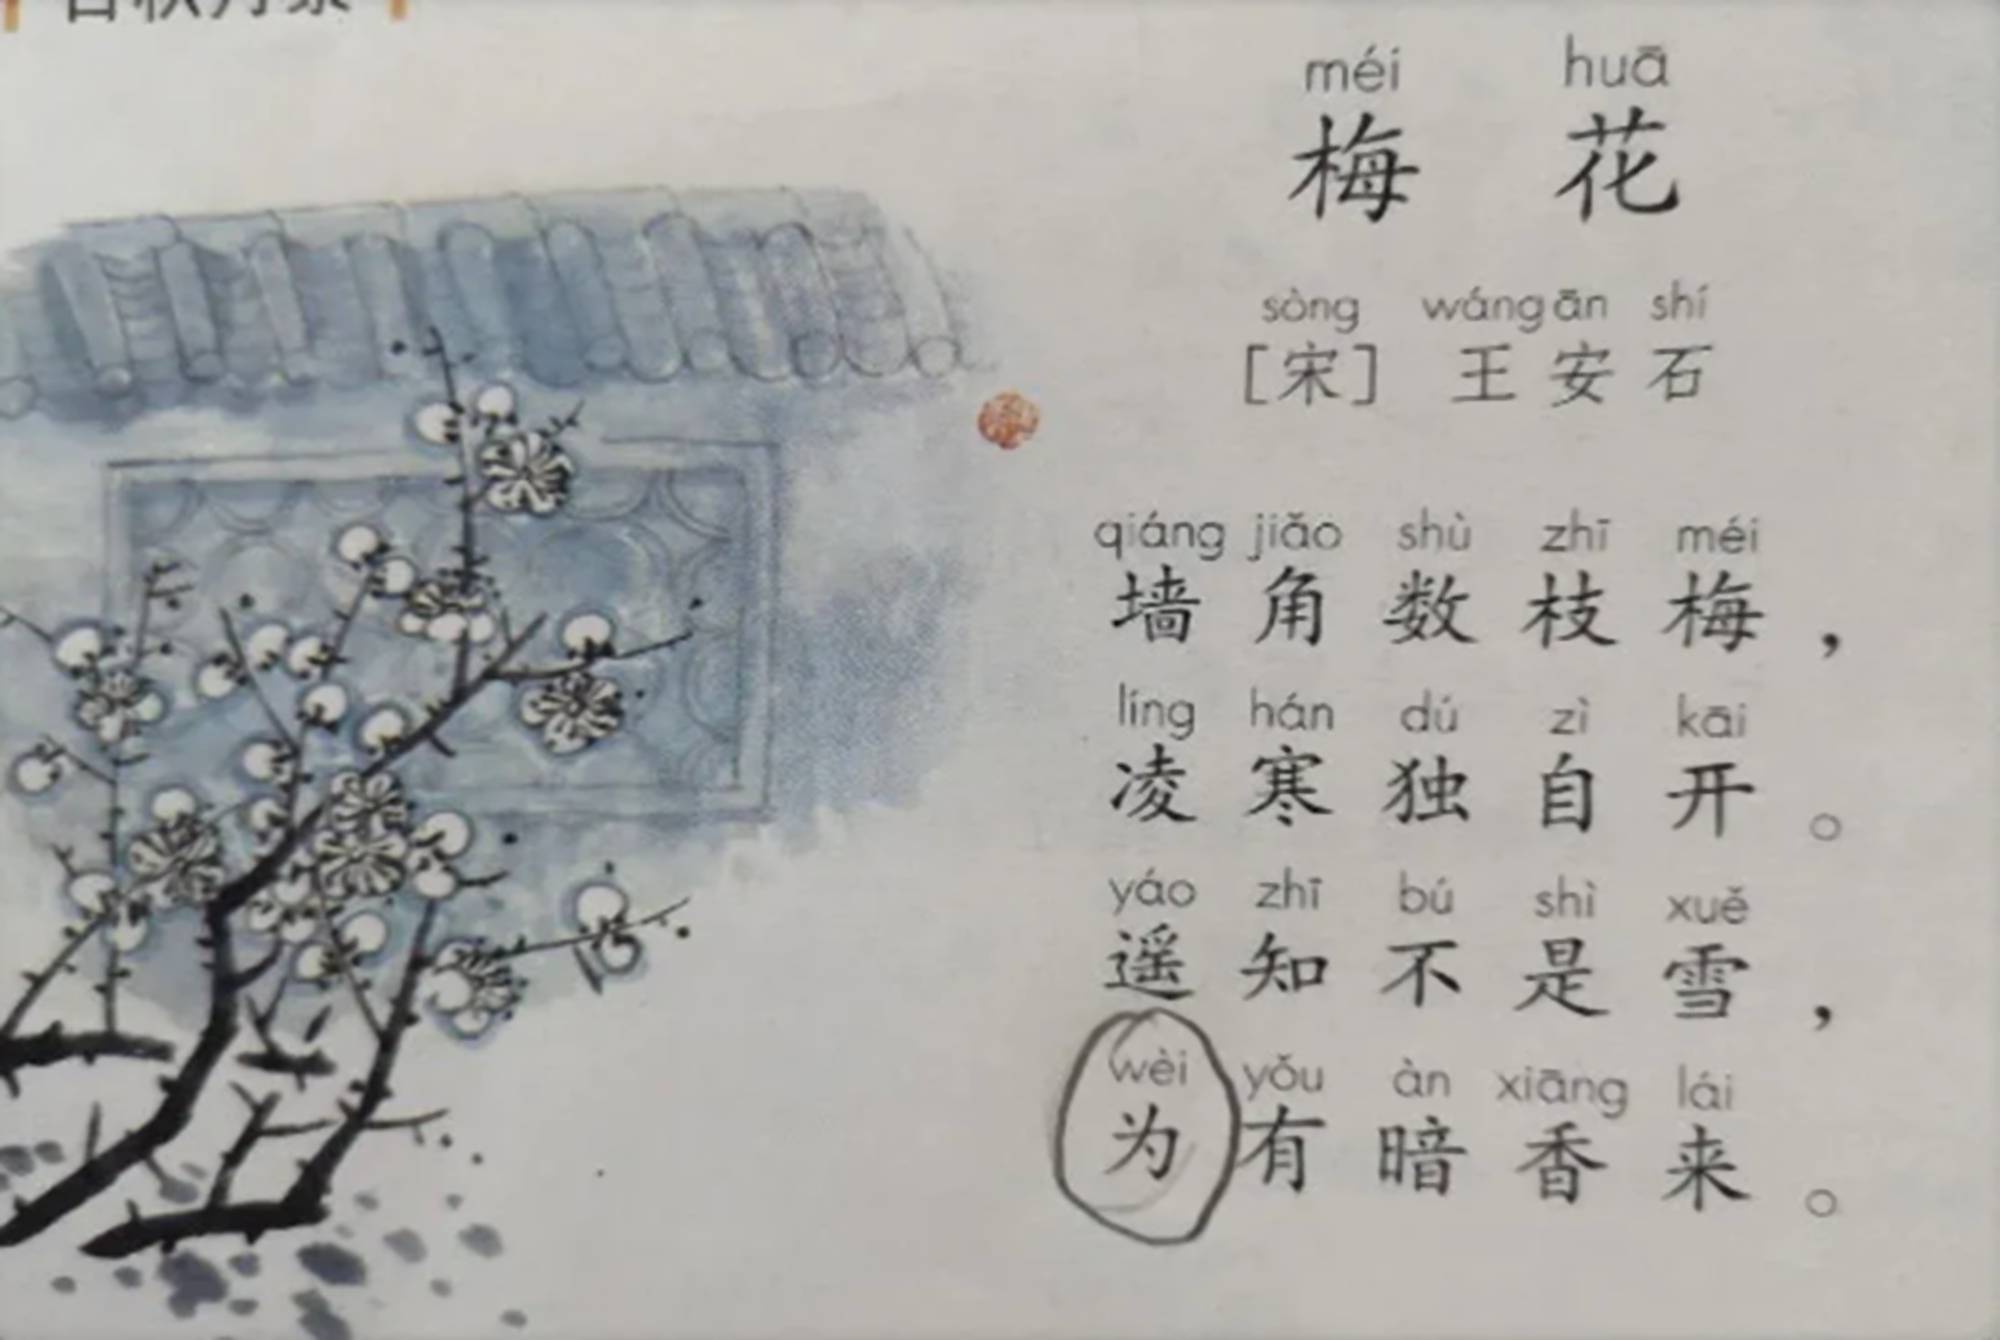 méi huā
梅 花
sòng wáng ān shí
[宋] 王 安 石
qiáng jiǎo shù zhī méi
墙 角 数 枝 梅，
líng hán dú zì kāi
凌 寒 独 自 开。
yáo zhī bú shì xuě
遥 知 不 是 雪，
wèi yǒu àn xiāng lái
为 有 暗 香 来。